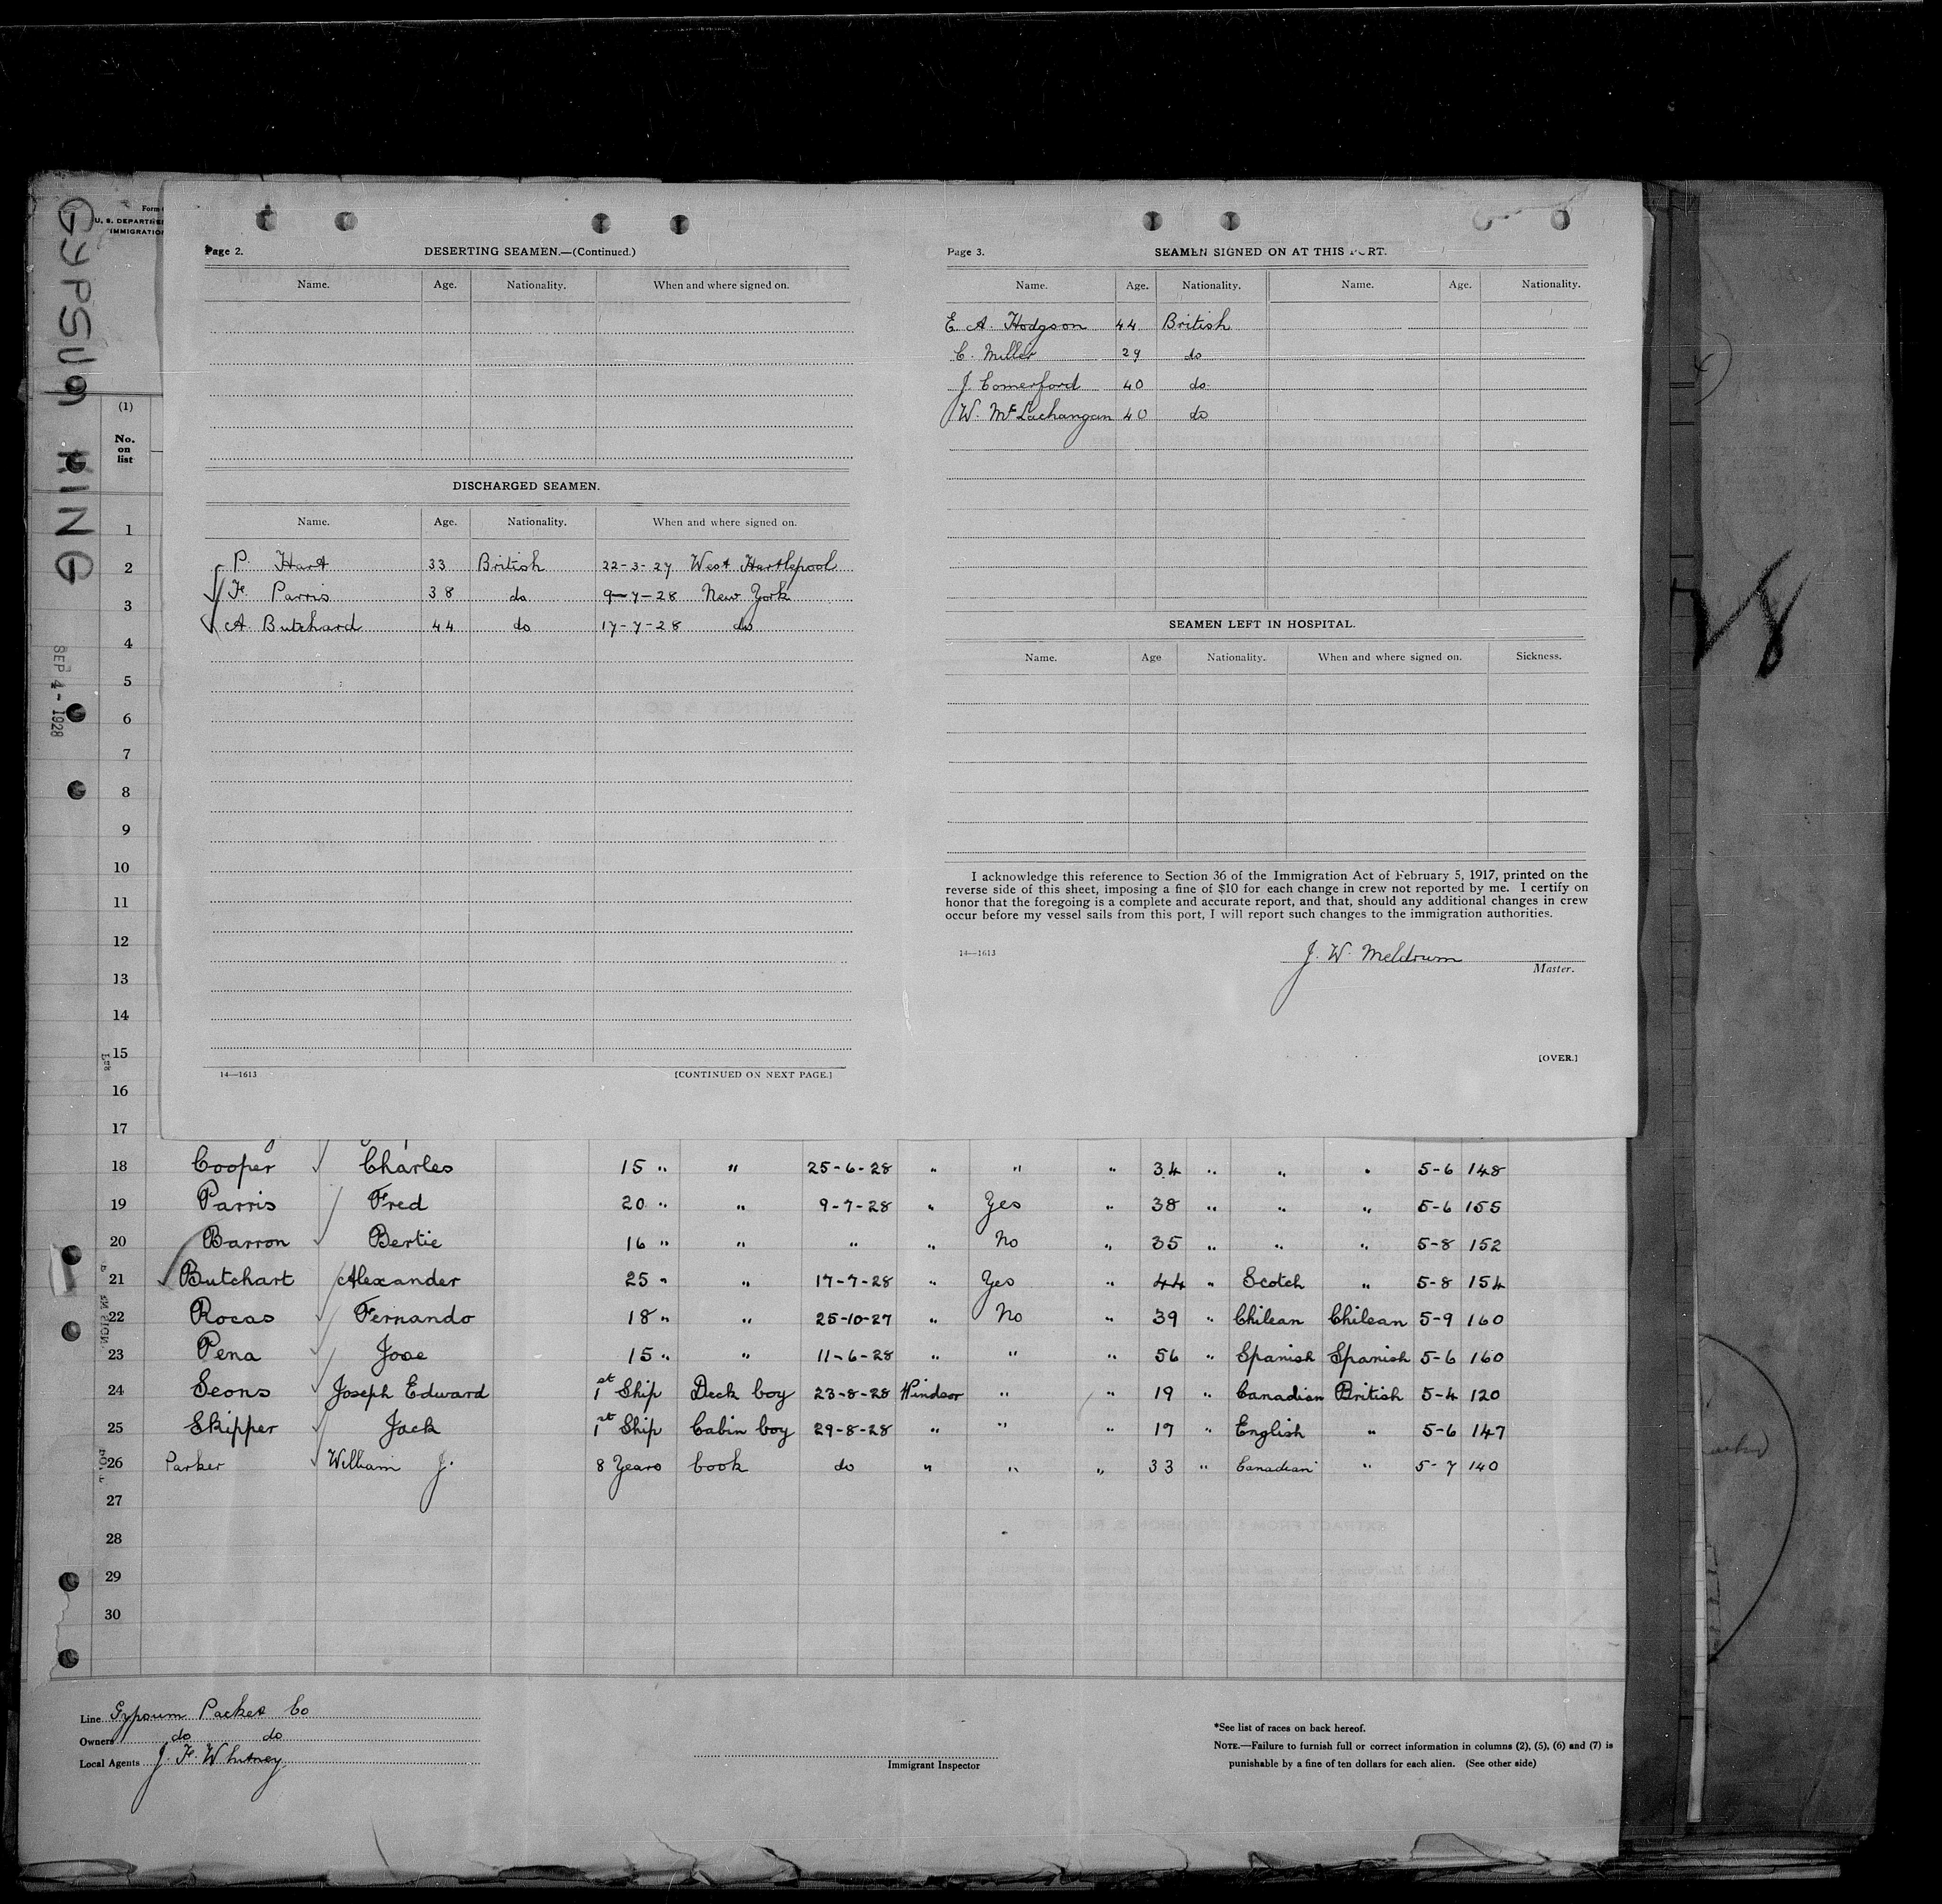 GYPSUM KING
SEP 4 - 1928
Form
U. S. DEPARTME
IMMIGRATIO
(1)
No.
on
list
Page 2.
DESERTING SEAMEN.—(Continued.)
Name. Age. Nationality. When and where signed on.
DISCHARGED SEAMEN.
Name. Age. Nationality. When and where signed on.
P. Hart 33 British 22-3-27 West Hartlepool
F. Parris 38 do 9-7-28 New York
A. Butchard 44 do 17-7-28 do
14—1613 [CONTINUED ON NEXT PAGE.]
Page 3.
SEAMEN SIGNED ON AT THIS PORT.
Name. Age. Nationality. Name. Age. Nationality.
E. A. Hodgson 44 British
C. Miller 29 do
J. Comerford 40 do
W. McLachangan 40 do
SEAMEN LEFT IN HOSPITAL.
Name. Age Nationality. When and where signed on. Sickness.
I acknowledge this reference to Section 36 of the Immigration Act of February 5, 1917, printed on the
reverse side of this sheet, imposing a fine of $10 for each change in crew not reported by me. I certify on
honor that the foregoing is a complete and accurate report, and that, should any additional changes in crew
occur before my vessel sails from this port, I will report such changes to the immigration authorities.
14—1613
J. W. Meldrum
Master.
[OVER.]
1
2
3
4
5
6
7
8
9
10
11
12
13
14
15
16
17
18 Cooper Charles 15 " " 25-6-28 " " " 34 " " " 5-6 148
19 Parris Fred 20 " " 9-7-28 " Yes " 38 " " " 5-6 155
20 Barron Bertie 16 " " " " No " 35 " " " 5-8 152
21 Butchart Alexander 25 " " 17-7-28 " Yes " 44 " Scotch " 5-8 154
22 Rocas Fernando 18 " " 25-10-27 " No " 39 " Chilean Chilean 5-9 160
23 Pena Jose 15 " " 11-6-28 " " " 56 " Spanish Spanish 5-6 160
24 Seons Joseph Edward 1st Ship Deck boy 23-8-28 Windsor " " 19 " Canadian British 5-4 120
25 Skipper Jack 1st Ship Cabin boy 29-8-28 " " " 17 " English " 5-6 147
26 Parker William J. 8 Years Cook do " " " 33 " Canadian " 5-7 140
27
28
29
30
Line Gypsum Packet Co
Owners do do
Local Agents J. F. Whitney
Immigrant Inspector
*See list of races on back hereof.
NOTE.—Failure to furnish full or correct information in columns (2), (5), (6) and (7) is
punishable by a fine of ten dollars for each alien. (See other side)
28